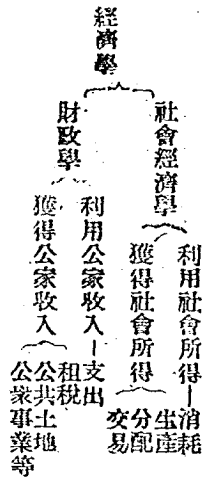 經濟學
社會經濟學
利用社會所得－消耗
獲得社會所得
生產
分配
交易
財政學
利用公家收入－支出
獲得公家收入
租稅
公共土地
公衆事業等